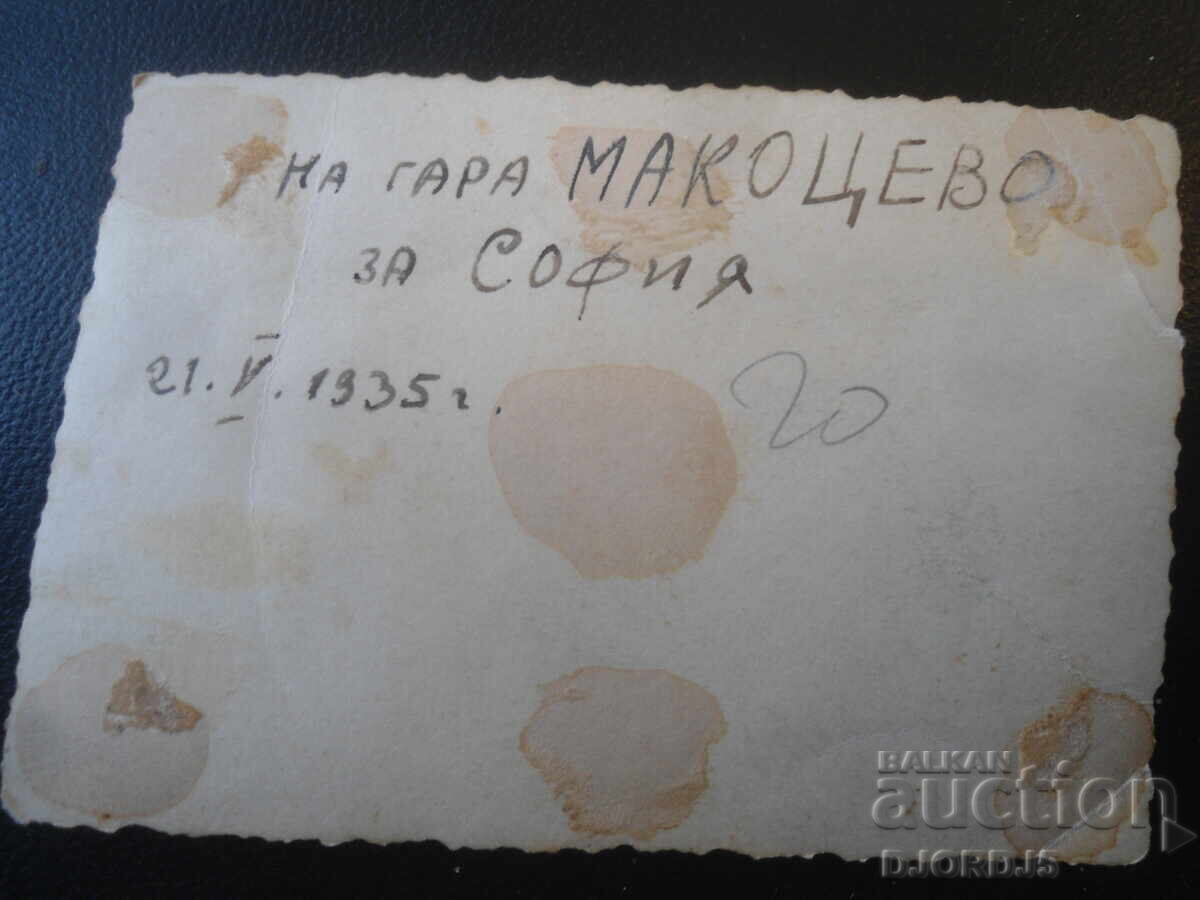 на гара МАКОЦЕВО
за София
21.V.1935 г.
20
BALKAN
auction
DJORDJ5